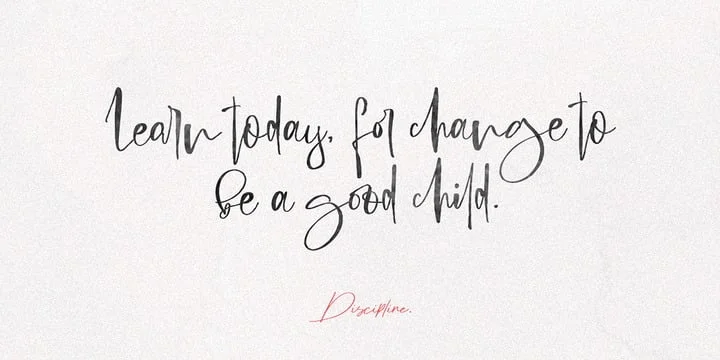 Learn today, for change to
be a good child.
Discipline.